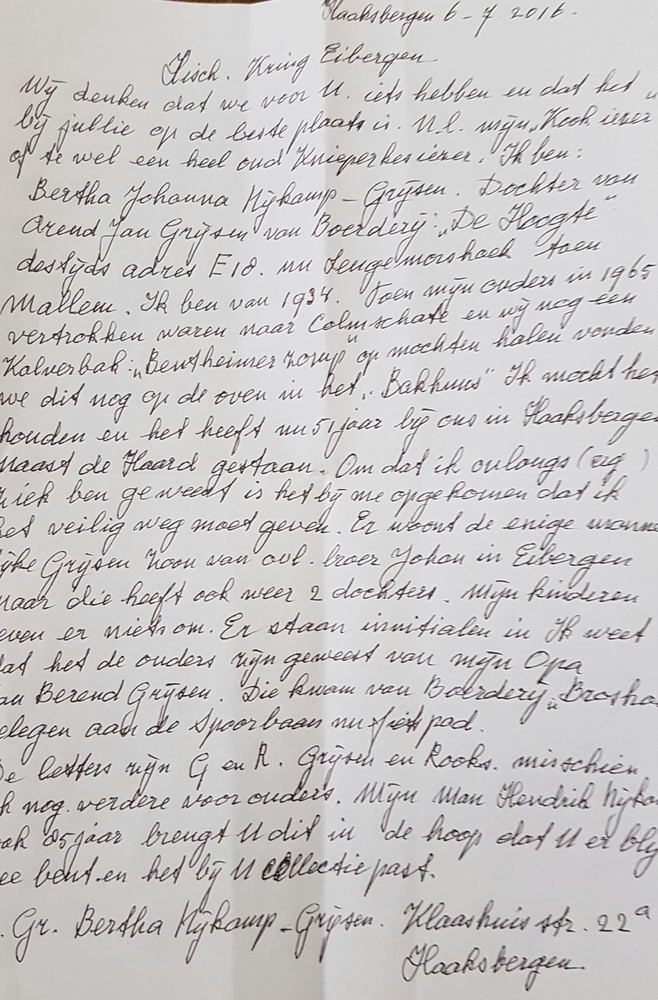 Haaksbergen 6-7 2016.
Hisch. Kring Eibergen
Wij denken dat we voor U. iets hebben en dat het
bij jullie op de beste plaats is. N.l. mijn „Kook iezer
of te wel een heel oud Knieperkesiezer. Ik ben:
Bertha Johanna Nijkamp-Grijsen. Dochter van
Arend Jan Grijsen van Boerderij: „De Hoogte"
destijds adres E18. nu Lengemorshoek toen
Mallem. Ik ben van 1934. Toen mijn ouders in 1965
vertrokken waren naar Colmschate en wij nog een
Kalverbak: „Bentheimer zomp" op mochten halen vonden
we dit nog op de oven in het „Bakhuus" Ik mocht het
houden en het heeft nu 51 jaar bij ons in Haaksbergen
naast de Haard gestaan. Om dat ik onlangs (erg)
ziek ben geweest is het bij me opgekomen dat ik
het veilig weg moet geven. Er woont de enige manne
ijke Grijsen zoon van ovl. broer Johan in Eibergen
maar die heeft ook weer 2 dochters. Mijn kinderen
even er niets om. Er staan innitialen in Ik weet
dat het de ouders zijn geweest van mijn Opa
an Berend Grijsen. Die kwam van Boerderij „Brosha
elegen aan de Spoorbaan nu fietspad.
De letters zijn G en R. Grijsen en Rooks. misschien
k nog verdere voorouders. Mijn man Hendrik Nijka
ok 85 jaar brengt U dit in de hoop dat U er blij
ee bent en het bij U collectie past.
. Gr. Bertha Nijkamp-Grijsen. Klaashuisstr. 22a
Haaksbergen.